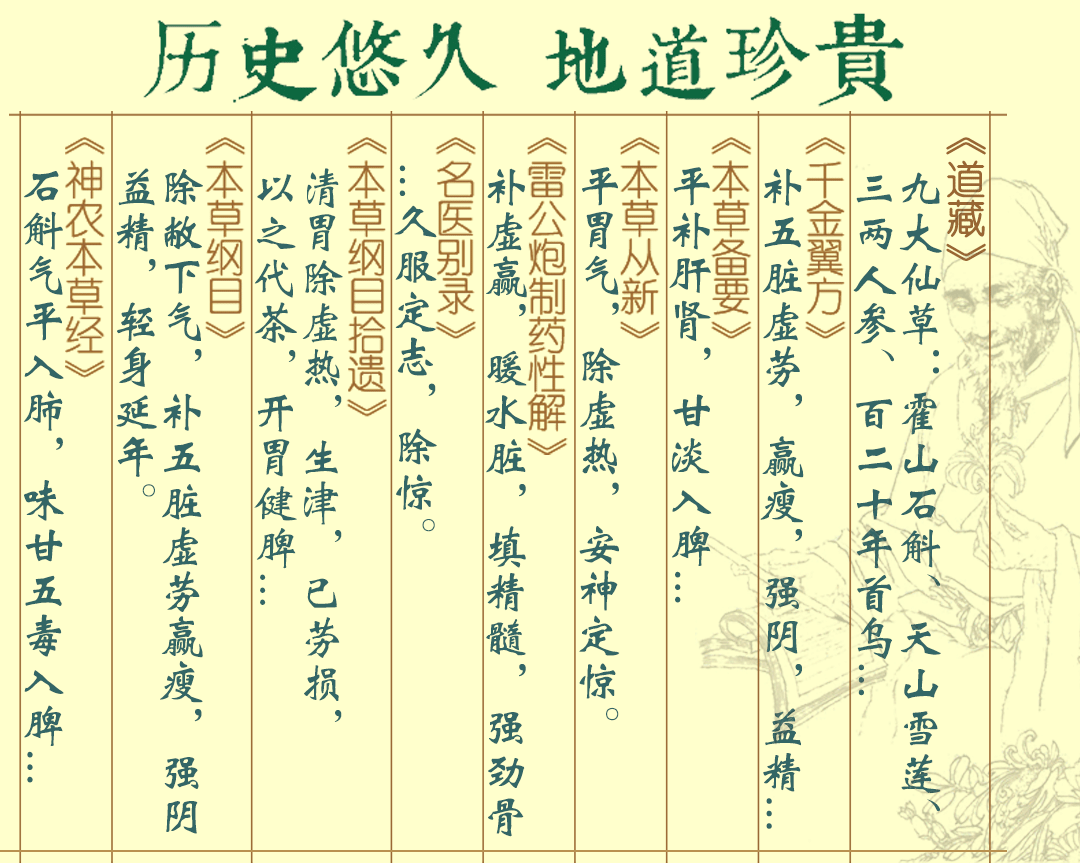 历史悠久 地道珍貴
《道藏》
九大仙草：霍山石斛、天山雪莲、
三两人参、百二十年首乌…
《千金翼方》
补五脏虚劳，羸瘦，强阴，益精…
《本草备要》
平补肝肾，甘淡入脾…
《本草从新》
平胃气，除虚热，安神定惊。
《雷公炮制药性解》
补虚羸，暖水脏，填精髓，强劲骨
《名医别录》
…久服定志，除惊。
《本草纲目拾遗》
清胃除虚热，生津，已劳损，
以之代茶，开胃健脾…
《本草纲目》
除敝下气，补五脏虚劳羸瘦，强阴
益精，轻身延年。
《神农本草经》
石斛气平入肺，味甘五毒入脾…